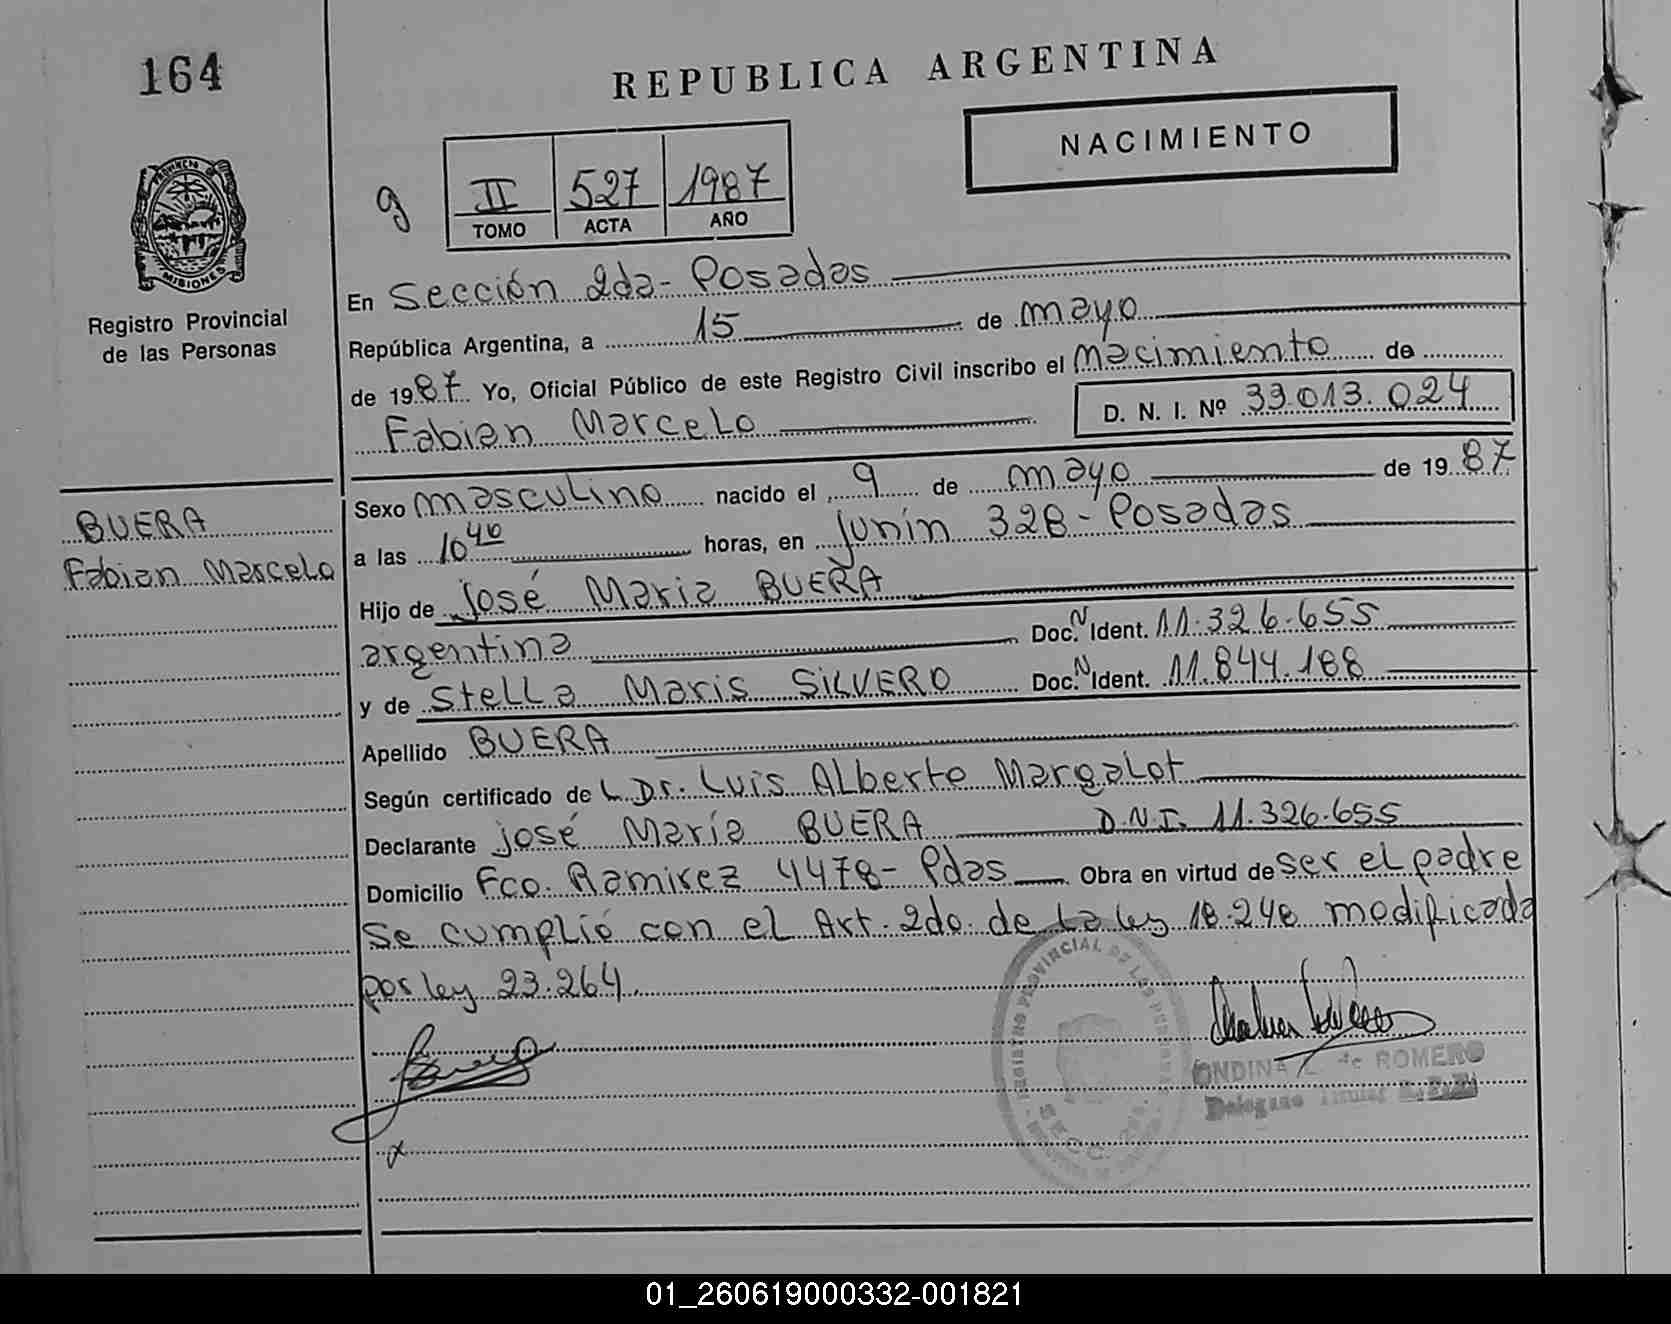 164
REPUBLICA ARGENTINA
NACIMIENTO
PROVINCIA
MISIONES
Registro Provincial
de las Personas
g
II 527 1987
TOMO ACTA AÑO
En Sección 2da- Posadas
República Argentina, a 15 de mayo
de 1987 Yo, Oficial Público de este Registro Civil inscribo el nacimiento de
Fabian Marcelo D. N. I. Nº 33.013.024
Sexo masculino nacido el 9 de mayo de 1987
BUERA
Fabian Marcelo
a las 10 40 horas, en Junín 328- Posadas
Hijo de José Maria BUERA
argentina Doc. N Ident. 11.326.655
y de Stella Maris SILVERO Doc. N Ident. 11.844.188
Apellido BUERA
Según certificado de L Dr. Luis Alberto Margalot
Declarante José María BUERA D.N.I. 11.326.655
Domicilio Fco. Ramirez 4478- Pdas Obra en virtud de ser el padre
Se cumplió con el Art. 2do. de la ley 18.248 modificada
por ley 23.264.
REGISTRO PROVINCIAL DE LAS PERSONAS
SECC. 2da.
ONDINA de ROMERO
Delegado Titular
01_260619000332-001821